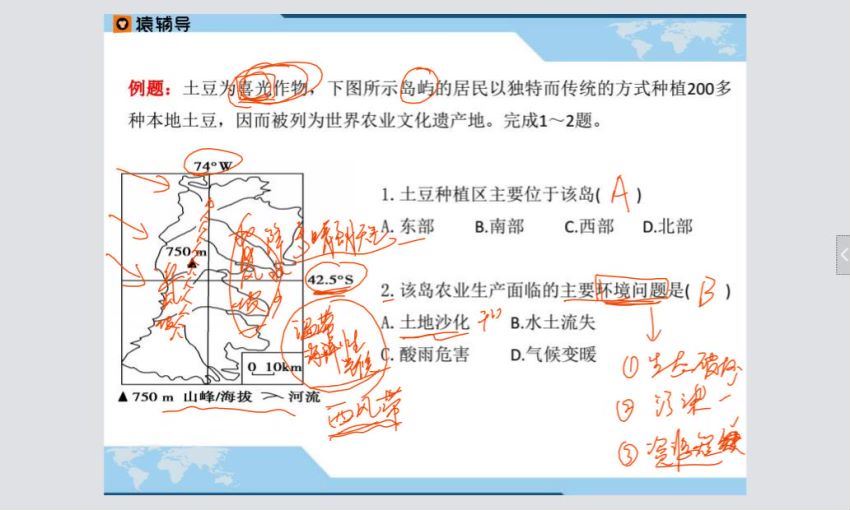 猿辅导
例题：土豆为喜光作物，下图所示岛屿的居民以独特而传统的方式种植200多
种本地土豆，因而被列为世界农业文化遗产地。完成1～2题。
74°W
750 m
42.5°S
0 10km
▲ 750 m 山峰/海拔 河流
温带
海洋性
气候
西风带
1. 土豆种植区主要位于该岛( A )
A. 东部 B.南部 C.西部 D.北部
2. 该岛农业生产面临的主要环境问题是( B )
A. 土地沙化 B.水土流失
C. 酸雨危害 D.气候变暖
① 生态破坏
② 污染
③ 资源短缺